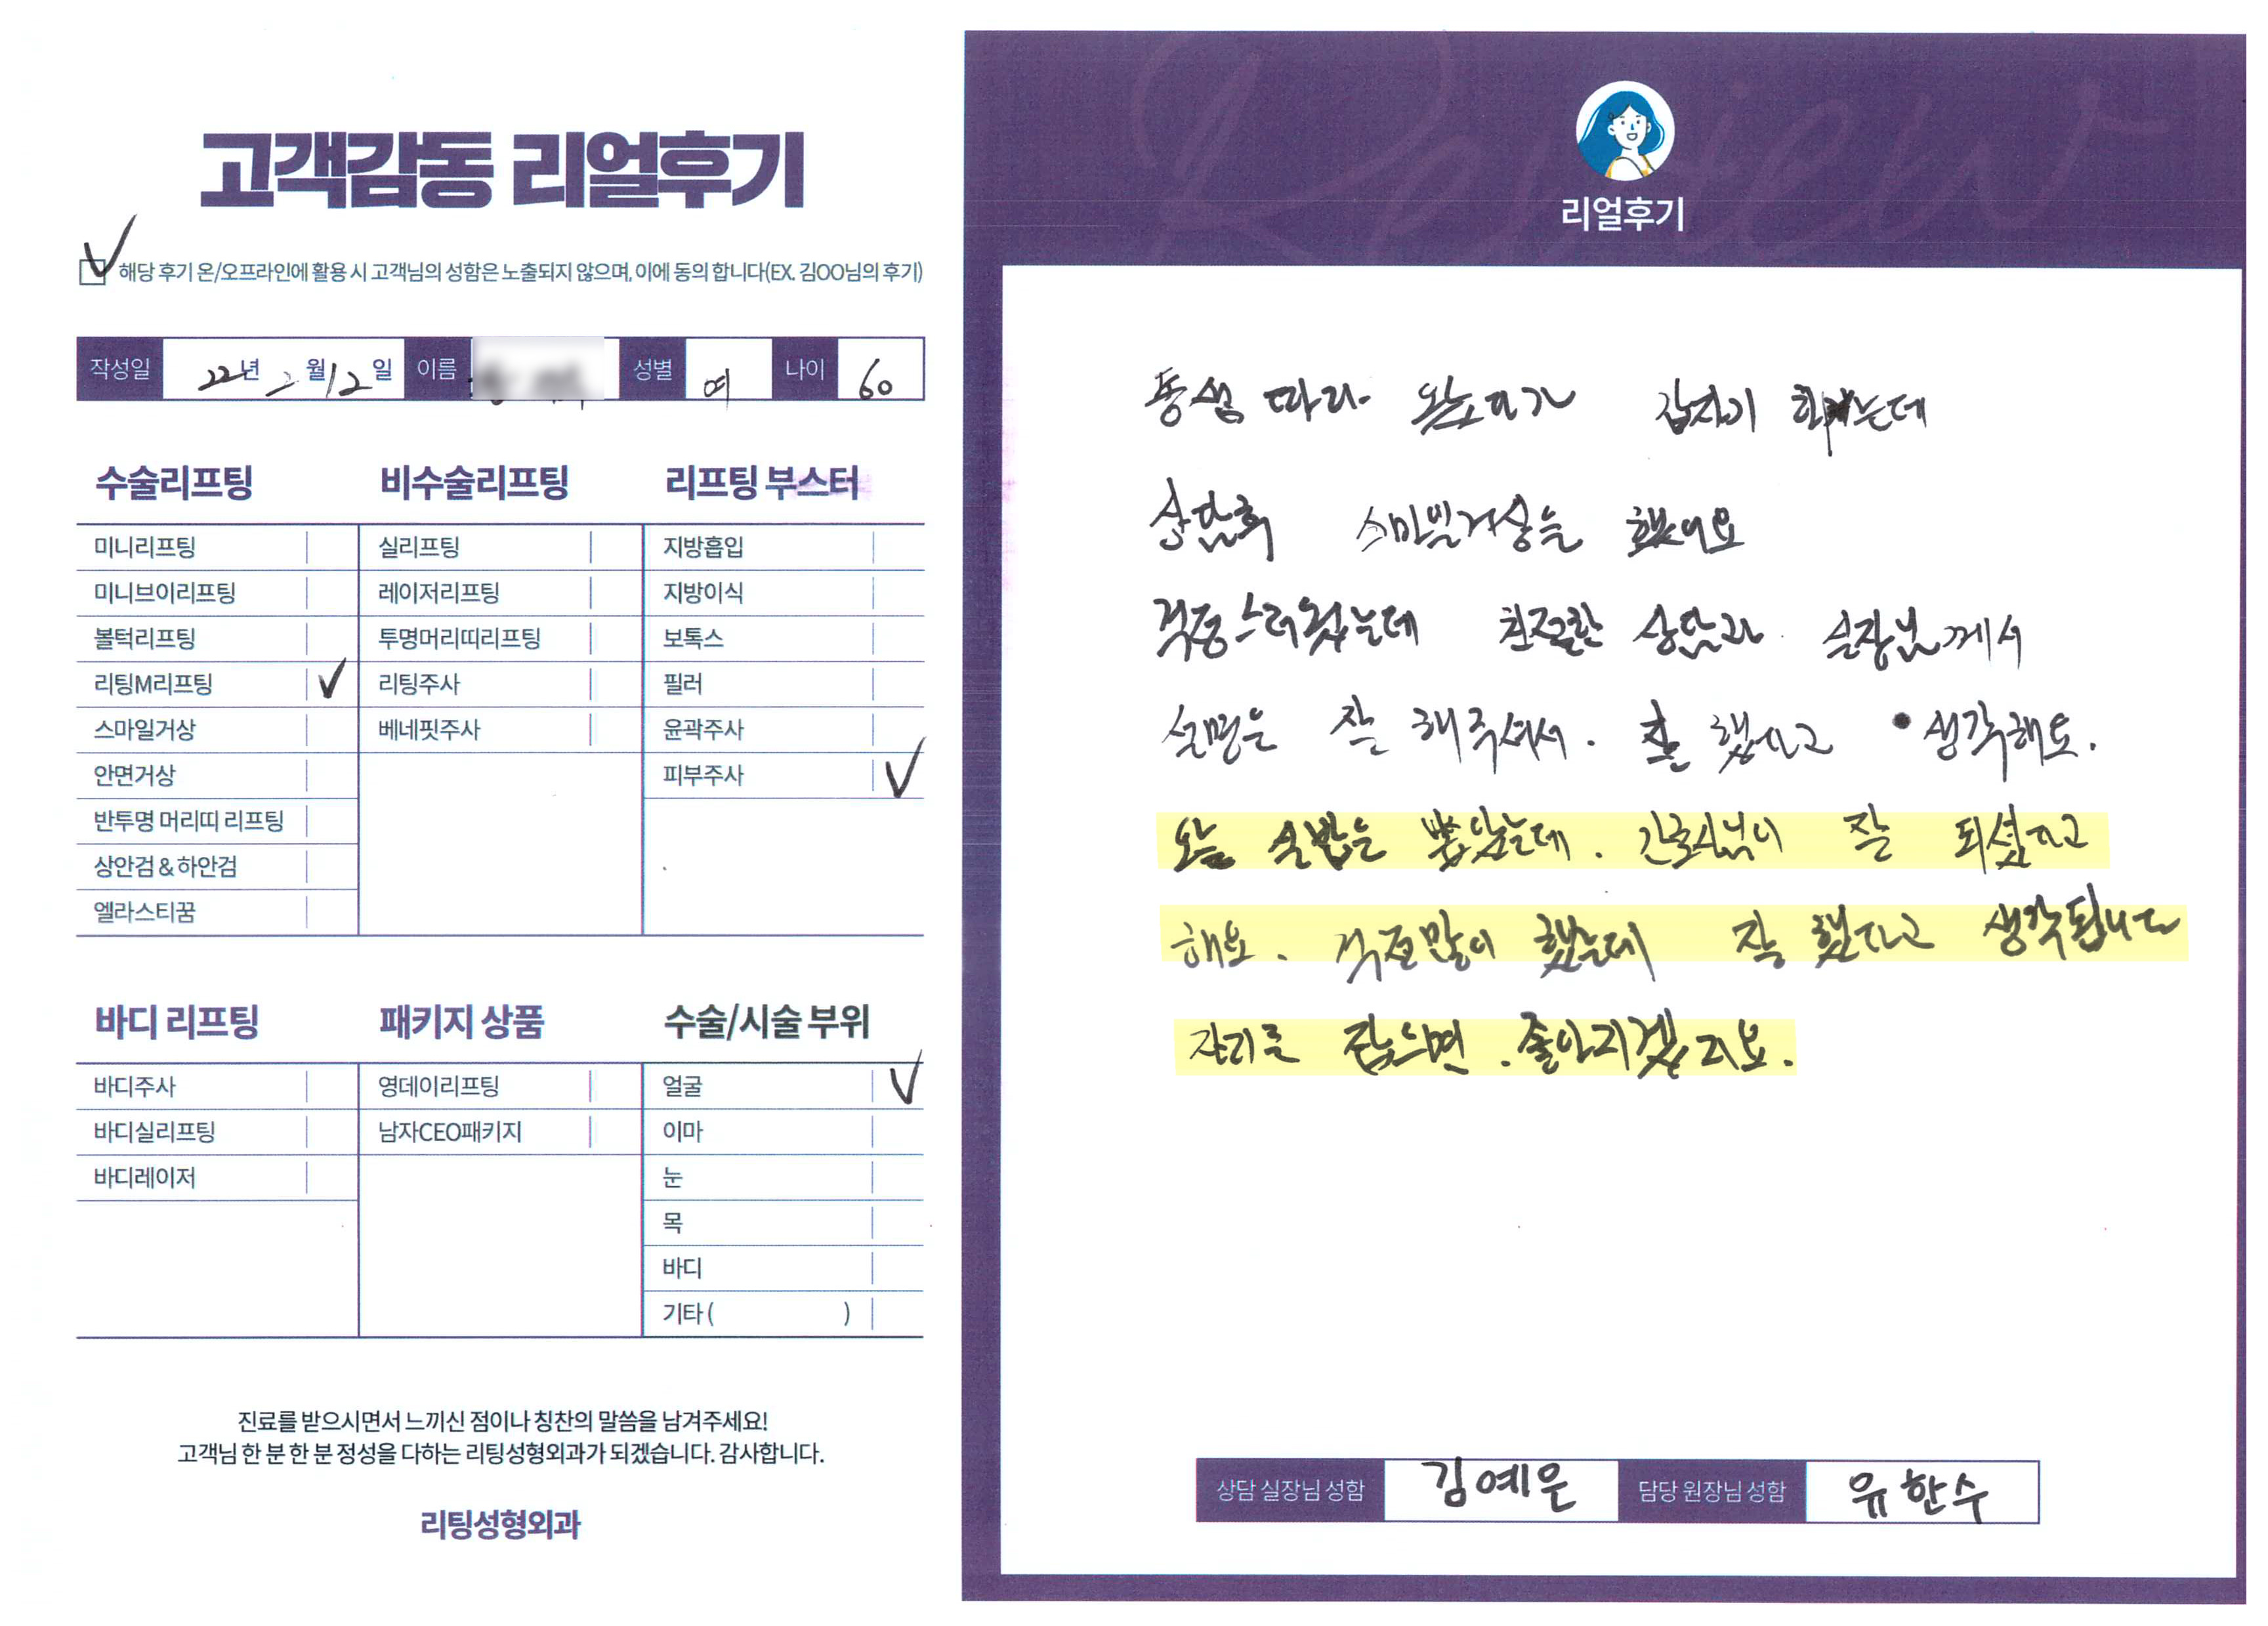 고객감동 리얼후기
해당 후기 온/오프라인에 활용 시 고객님의 성함은 노출되지 않으며, 이에 동의 합니다(EX. 김OO님의 후기)
작성일 22년 2월 12일 이름 성별 여 나이 60
수술리프팅
미니리프팅
미니브이리프팅
볼턱리프팅
리팅M리프팅
스마일거상
안면거상
반투명 머리띠 리프팅
상안검 & 하안검
엘라스티꿈
비수술리프팅
실리프팅
레이저리프팅
투명머리띠리프팅
리팅주사
베네핏주사
리프팅 부스터
지방흡입
지방이식
보톡스
필러
윤곽주사
피부주사
바디 리프팅
바디주사
바디실리프팅
바디레이저
패키지 상품
영데이리프팅
남자CEO패키지
수술/시술 부위
얼굴
이마
눈
목
바디
기타 ( )
진료를 받으시면서 느끼신 점이나 칭찬의 말씀을 남겨주세요!
고객님 한 분 한 분 정성을 다하는 리팅성형외과가 되겠습니다. 감사합니다.
리팅성형외과
Review
리얼후기
동생 따라 왔다가 갑자기 는데
상담후 스마일거상을 했어요
걱정스러웠는데 친절한 상담과 실장님께서
설명을 잘 해주셔서. 잘 했다고 생각해요.
오늘 실밥을 뽑았는데. 간호사님이 잘 되셨다고
해요. 걱정많이 했는데 잘 했다고 생각됩니다
자리를 잡으면. 좋아지겠지요.
상담 실장님 성함 김예은 담당 원장님 성함 유한수